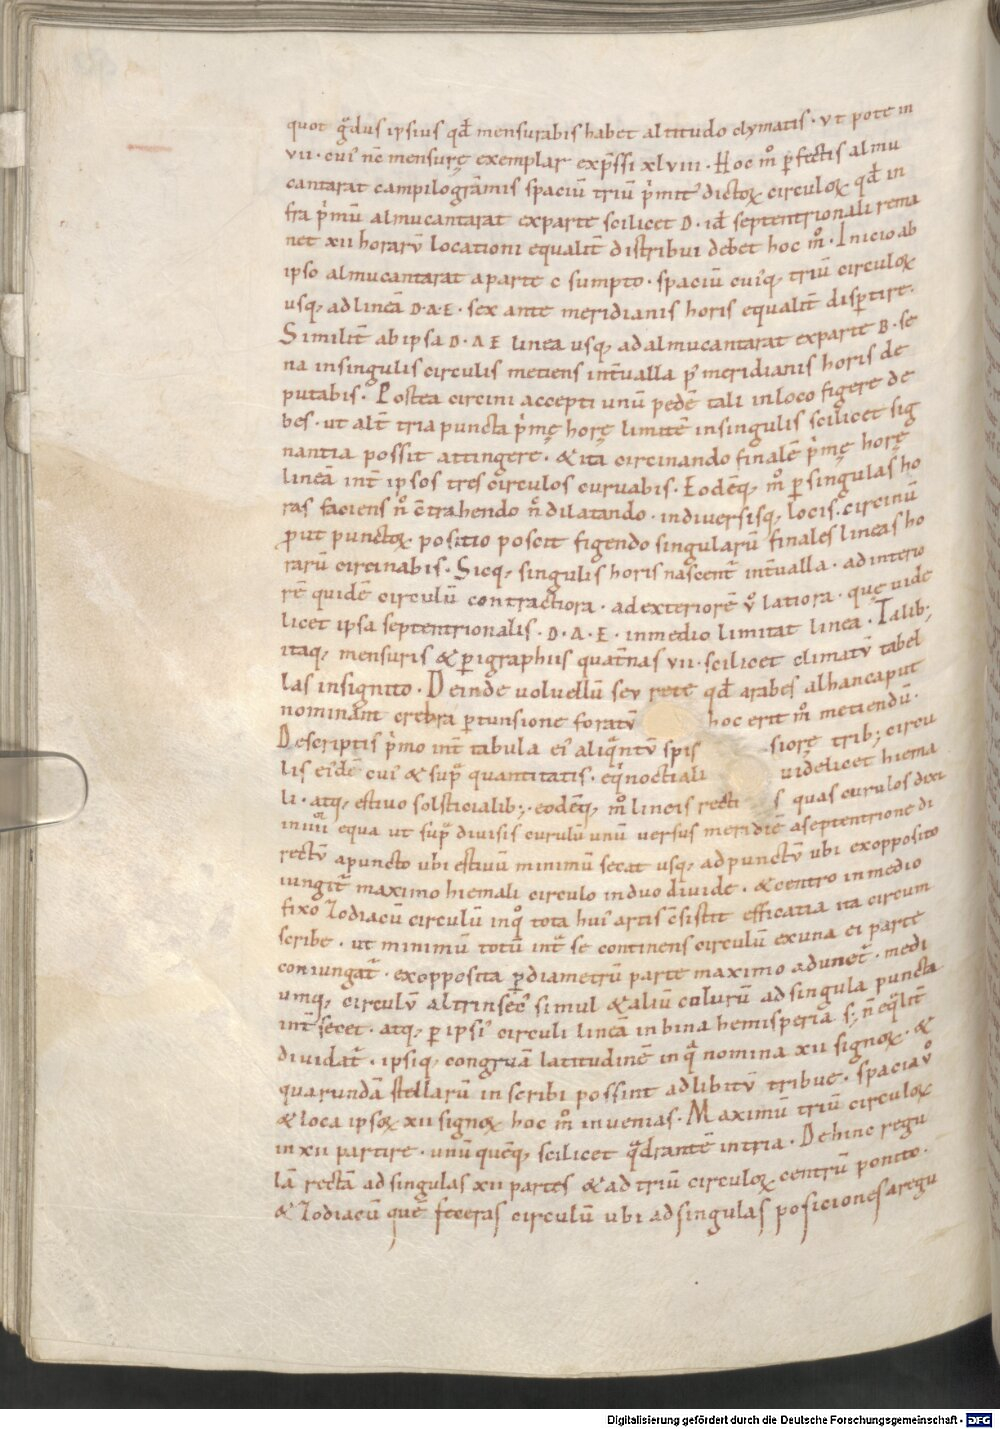 quot g̃dus ipsius qđ mensurabis habet altitudo clymatis · ut pote in
vii · cui᷒ nc̄ mensurę exemplar exp̄ssi xlviii · Hoc m̊ ꝑfectis almu
cantarat campilogrāmis spaciū triū p̄mit᷒ dictoꝝ circuloꝝ qđ in
fra p̄mū almucantarat ex parte scilicet D · id̄ septentrionali rema
net xii horarū locationi equalit̄ distribui debet hoc m̊ · Inicio ab
ipso almucantarat a parte c sumpto · spaciū cui᷒q, triū circuloꝝ
usq, ad lineā D·A·E · sex ante meridianis horis equalit̄ disꝑtire·
Similit̄ ab ipsa D·A E linea usq, ad almucantarat ex parte B · se
na in singulis circulis metiens int̄ualla p᷒ meridianis horis de
putabis · Postea circini accepti unū pedē tali in loco figere de
bes · ut alt̄ tria puncta p̄mę horę limitē in singulis scilicet sig
nantia possit attingere · & ita circinando finalē p̄mę horę
lineā int̄ ipsos tres circulos curuabis · Eodēq, m̊ ꝑ singulas ho
ras faciens n̊ c̄trahendo n̊ dilatando · in diuersisq, locis · circinū
ꝓut punctoꝝ positio poscit figendo singularū finales lineas ho
rarū circinabis · Sicq, singulis horis nascent᷒ int̄ualla · ad interio
rē quidē circulū contractiora · ad exteriorē v̊ latiora · quę uide
licet ipsa septentrionalis · D · A · E · in medio limitat linea · Talib;
itaq, mensuris & ꝑigraphiis quat̄nas vii · scilicet climatū tabel
las insignito · Deinde uoluellū seu rete qđ arabes alhancaput
nominant crebra ꝑtunsione foratū hoc erit m̊ metiendū ·
Descriptis p̄mo int̄ tabula ei᷒ aliq̃ntū spis siorę trib; circu
lis ei᷒dē cui᷒ & sup̃ quantitatis · eq̃noctiali uidelicet hiema
li · atq, estiuo solsticialib; · eodēq, m̊ lineis recti s quas curulos dixi
equa ut sup̃ diuisis curulū unū versus meridiē a septentrione di
rectū a puncto ubi estiuū minimū secat usq, ad punctū ubi ex opposito
iungit᷒ maximo hiemali circulo in duo diuide · & centro in medio
fixo Zodiacū circulū in q̊ tota hui᷒ artis c̄sistit efficatia ita circum
scribe · ut minimū totū int᷒ se continens circulū ex una ei parte
coniungat᷒ · ex opposita ꝑ diametrū parte maximo adunet᷒ · medi
umq, circulū altrinsec᷒ simul & aliū colurū ad singula puncta
int̄secet · atq, ꝑ ipsi᷒ circuli lineā in bina hemisperia s; n̄ eq̃lit̄
diuidat᷒ · ipsiq, congruā latitudinē in q̃ nomina xii signoꝝ · &
quarundā stellarū inscribi possint ad libitū tribue · spacia v̊
& loca ipsoꝝ xii signoꝝ hoc m̊ inuenias · Maximū triū circuloꝝ
in xii partire · unū quēq, scilicet q̃drantē in tria · Dehinc regu
lā rectā ad singulas xii partes & ad triū circuloꝝ centrū ponito ·
& Zodiacū quē feceras circulū ubi ad singulas posiciones a regu
Digitalisierung gefördert durch die Deutsche Forschungsgemeinschaft - DFG